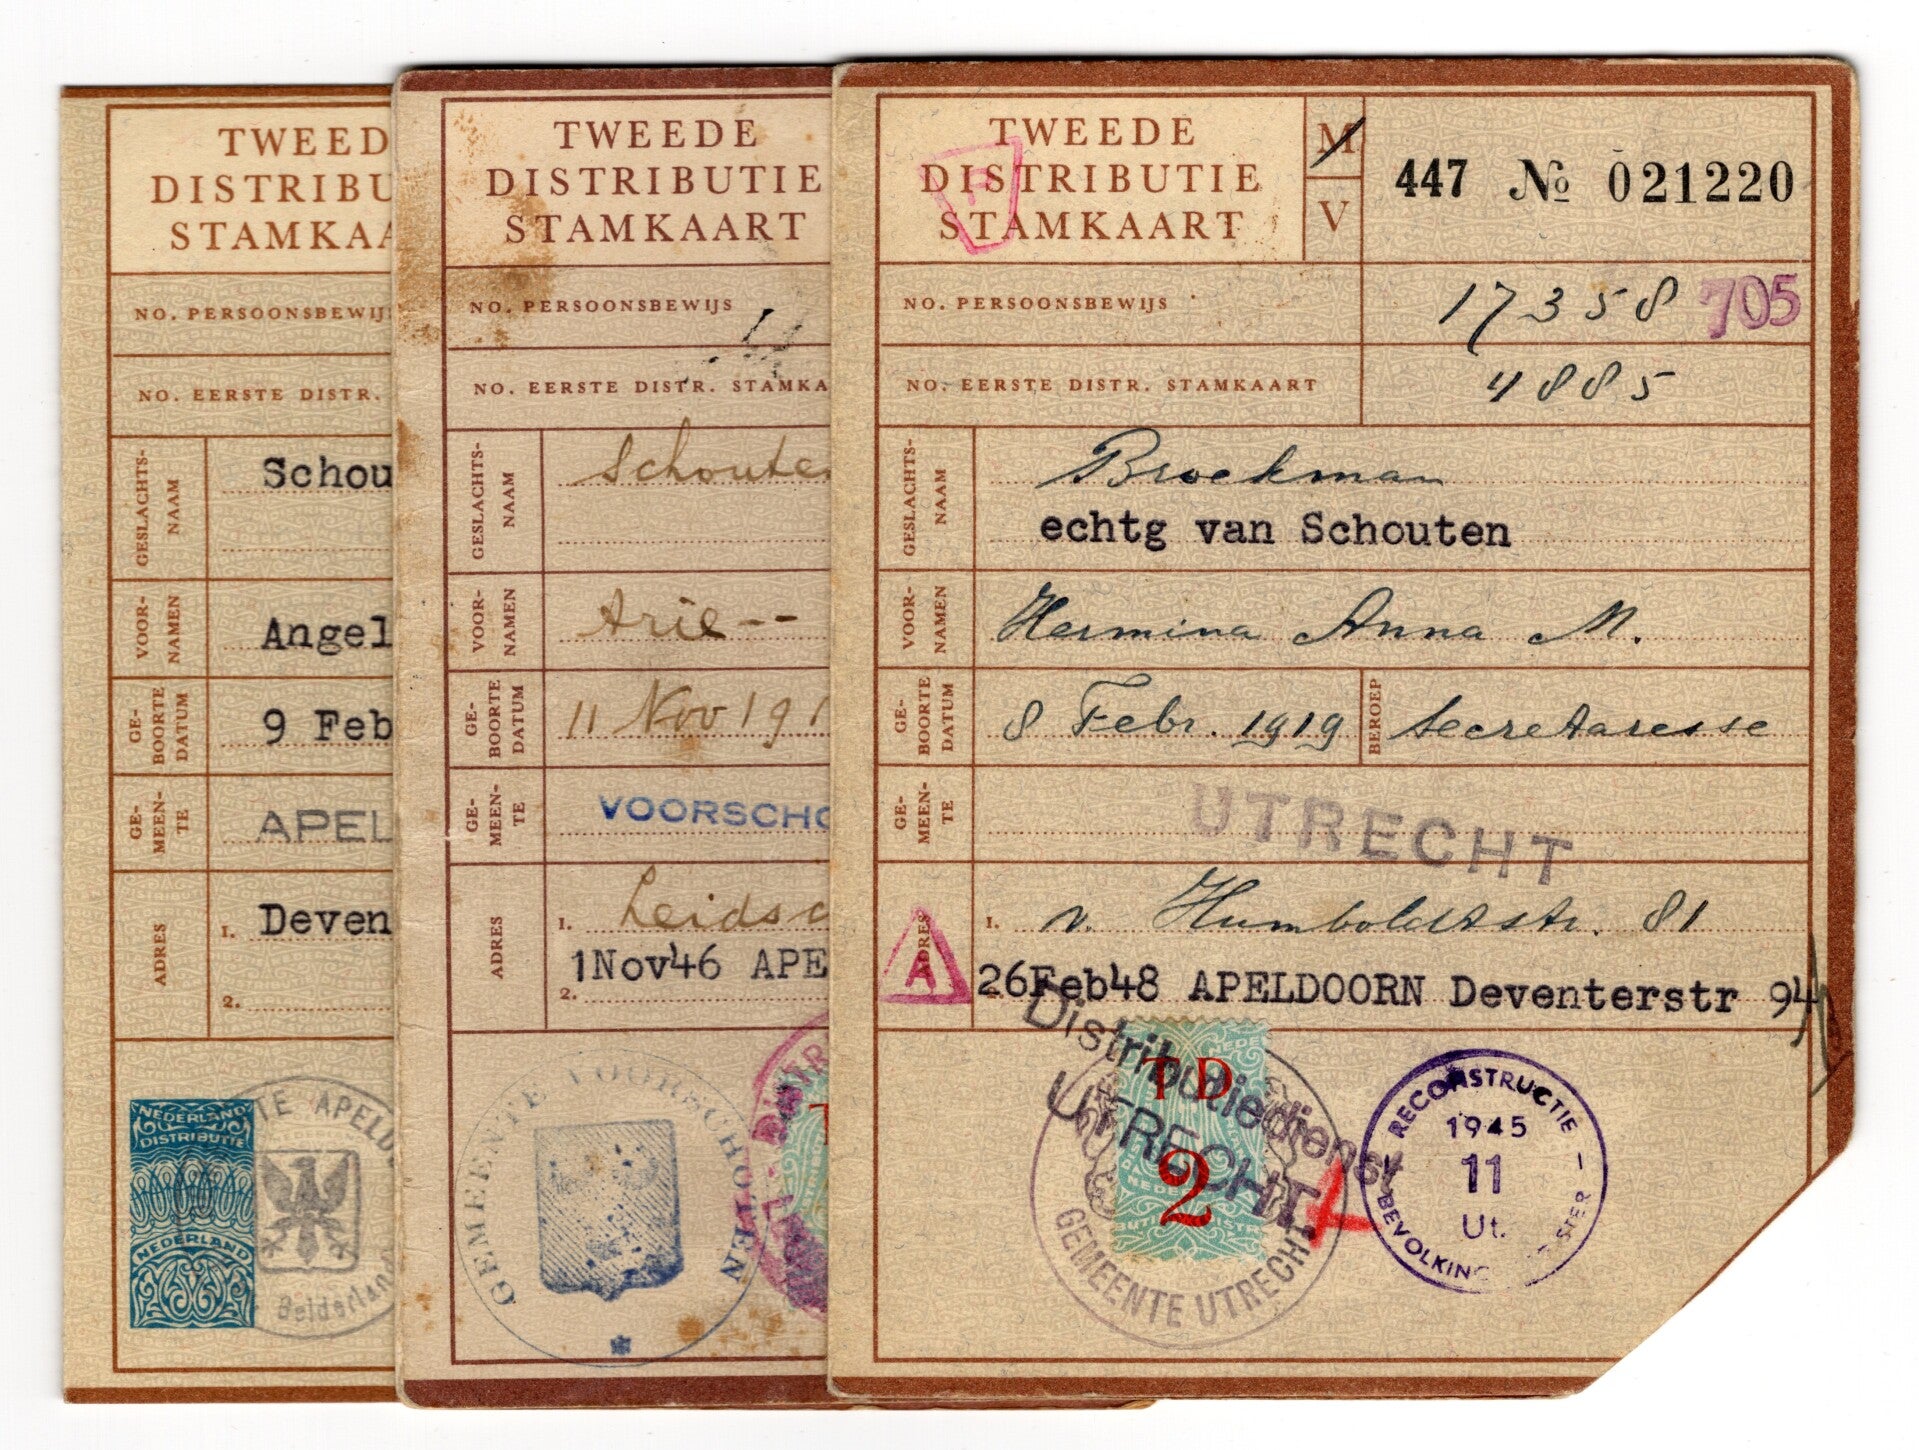 TWEED
DISTRIBU
STAMKAA
NO. PERSOONSBEWIJ
NO. EERSTE DISTR.
GESLACHTS-
NAAM
Schou
VOOR-
NAMEN
Angel
GE-
BOORTE
DATUM
9 Feb
GE-
MEEN-
TE
APEL
ADRES
1. Deven
2.
NEDERLAND
DISTRIBUTIE
NEDERLAND
TE APELD
Gelderland
TWEEDE
DISTRIBUTIE
STAMKAART
NO. PERSOONSBEWIJS
NO. EERSTE DISTR. STAMKA
GESLACHTS-
NAAM
Schouten
VOOR-
NAMEN
Arie--
GE-
BOORTE
DATUM
11 Nov 191
GE-
MEEN-
TE
VOORSCHO
ADRES
1. Leidsc
1Nov46 APE
2.
GEMEENTE VOORSCHOTEN
TWEEDE
DISTRIBUTIE
STAMKAART
M
V
447 No 021220
NO. PERSOONSBEWIJS
17358 705
NO. EERSTE DISTR. STAMKAART
4885
GESLACHTS-
NAAM
Broekman
echtg van Schouten
VOOR-
NAMEN
Hermina Anna M.
GE-
BOORTE
DATUM
8 Febr. 1919
BEROEP
Secretaresse
GE-
MEEN-
TE
UTRECHT
ADRES
A
1. v. Humboldtstr. 81
26Feb48 APELDOORN Deventerstr 94
Distributiedienst
UTRECHT.
TD
2
GEMEENTE UTRECHT
RECONSTRUCTIE
1945
11
Ut.